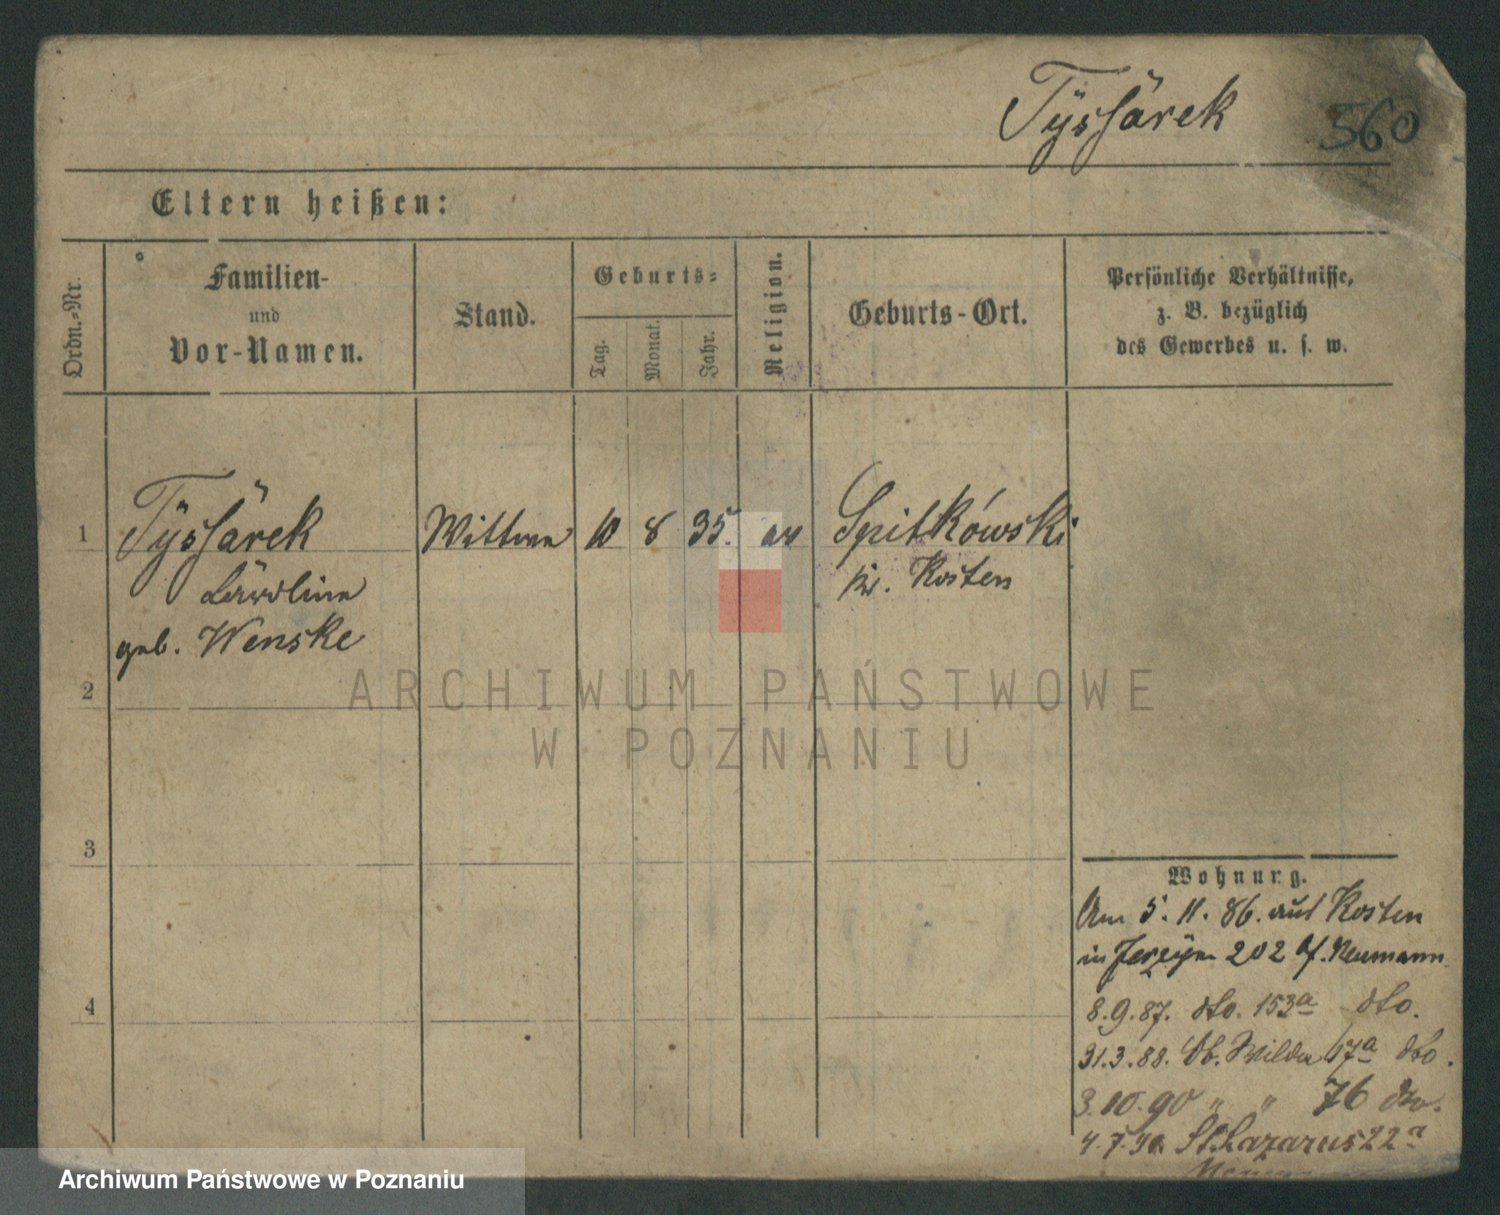 Tÿssarek 560
Eltern heißen:
Ordn.-Nr.
Familien-
und
Vor-Namen.
Stand.
Geburts-
Tag.
Monat.
Jahr.
Religion.
Geburts-Ort.
Persönliche Verhältnisse,
z. B. bezüglich
des Gewerbes u. s. w.
1 Tÿssarek Wittwe 10 8 35. Spitkówski
Kr. Kosten
geb. Wenske
2
3
4
Wohnung.
Am 5. 11. 86. aus Kosten
in Jerzÿce 202 Neumann
8. 9. 87. dto. 153a dto.
31. 3. 88. Ob. Wilda 17a dto.
3. 10. 90 " " 76 dto.
St. Lazarus 22a
ARCHIWUM PAŃSTWOWE
W POZNANIU
Archiwum Państwowe w Poznaniu